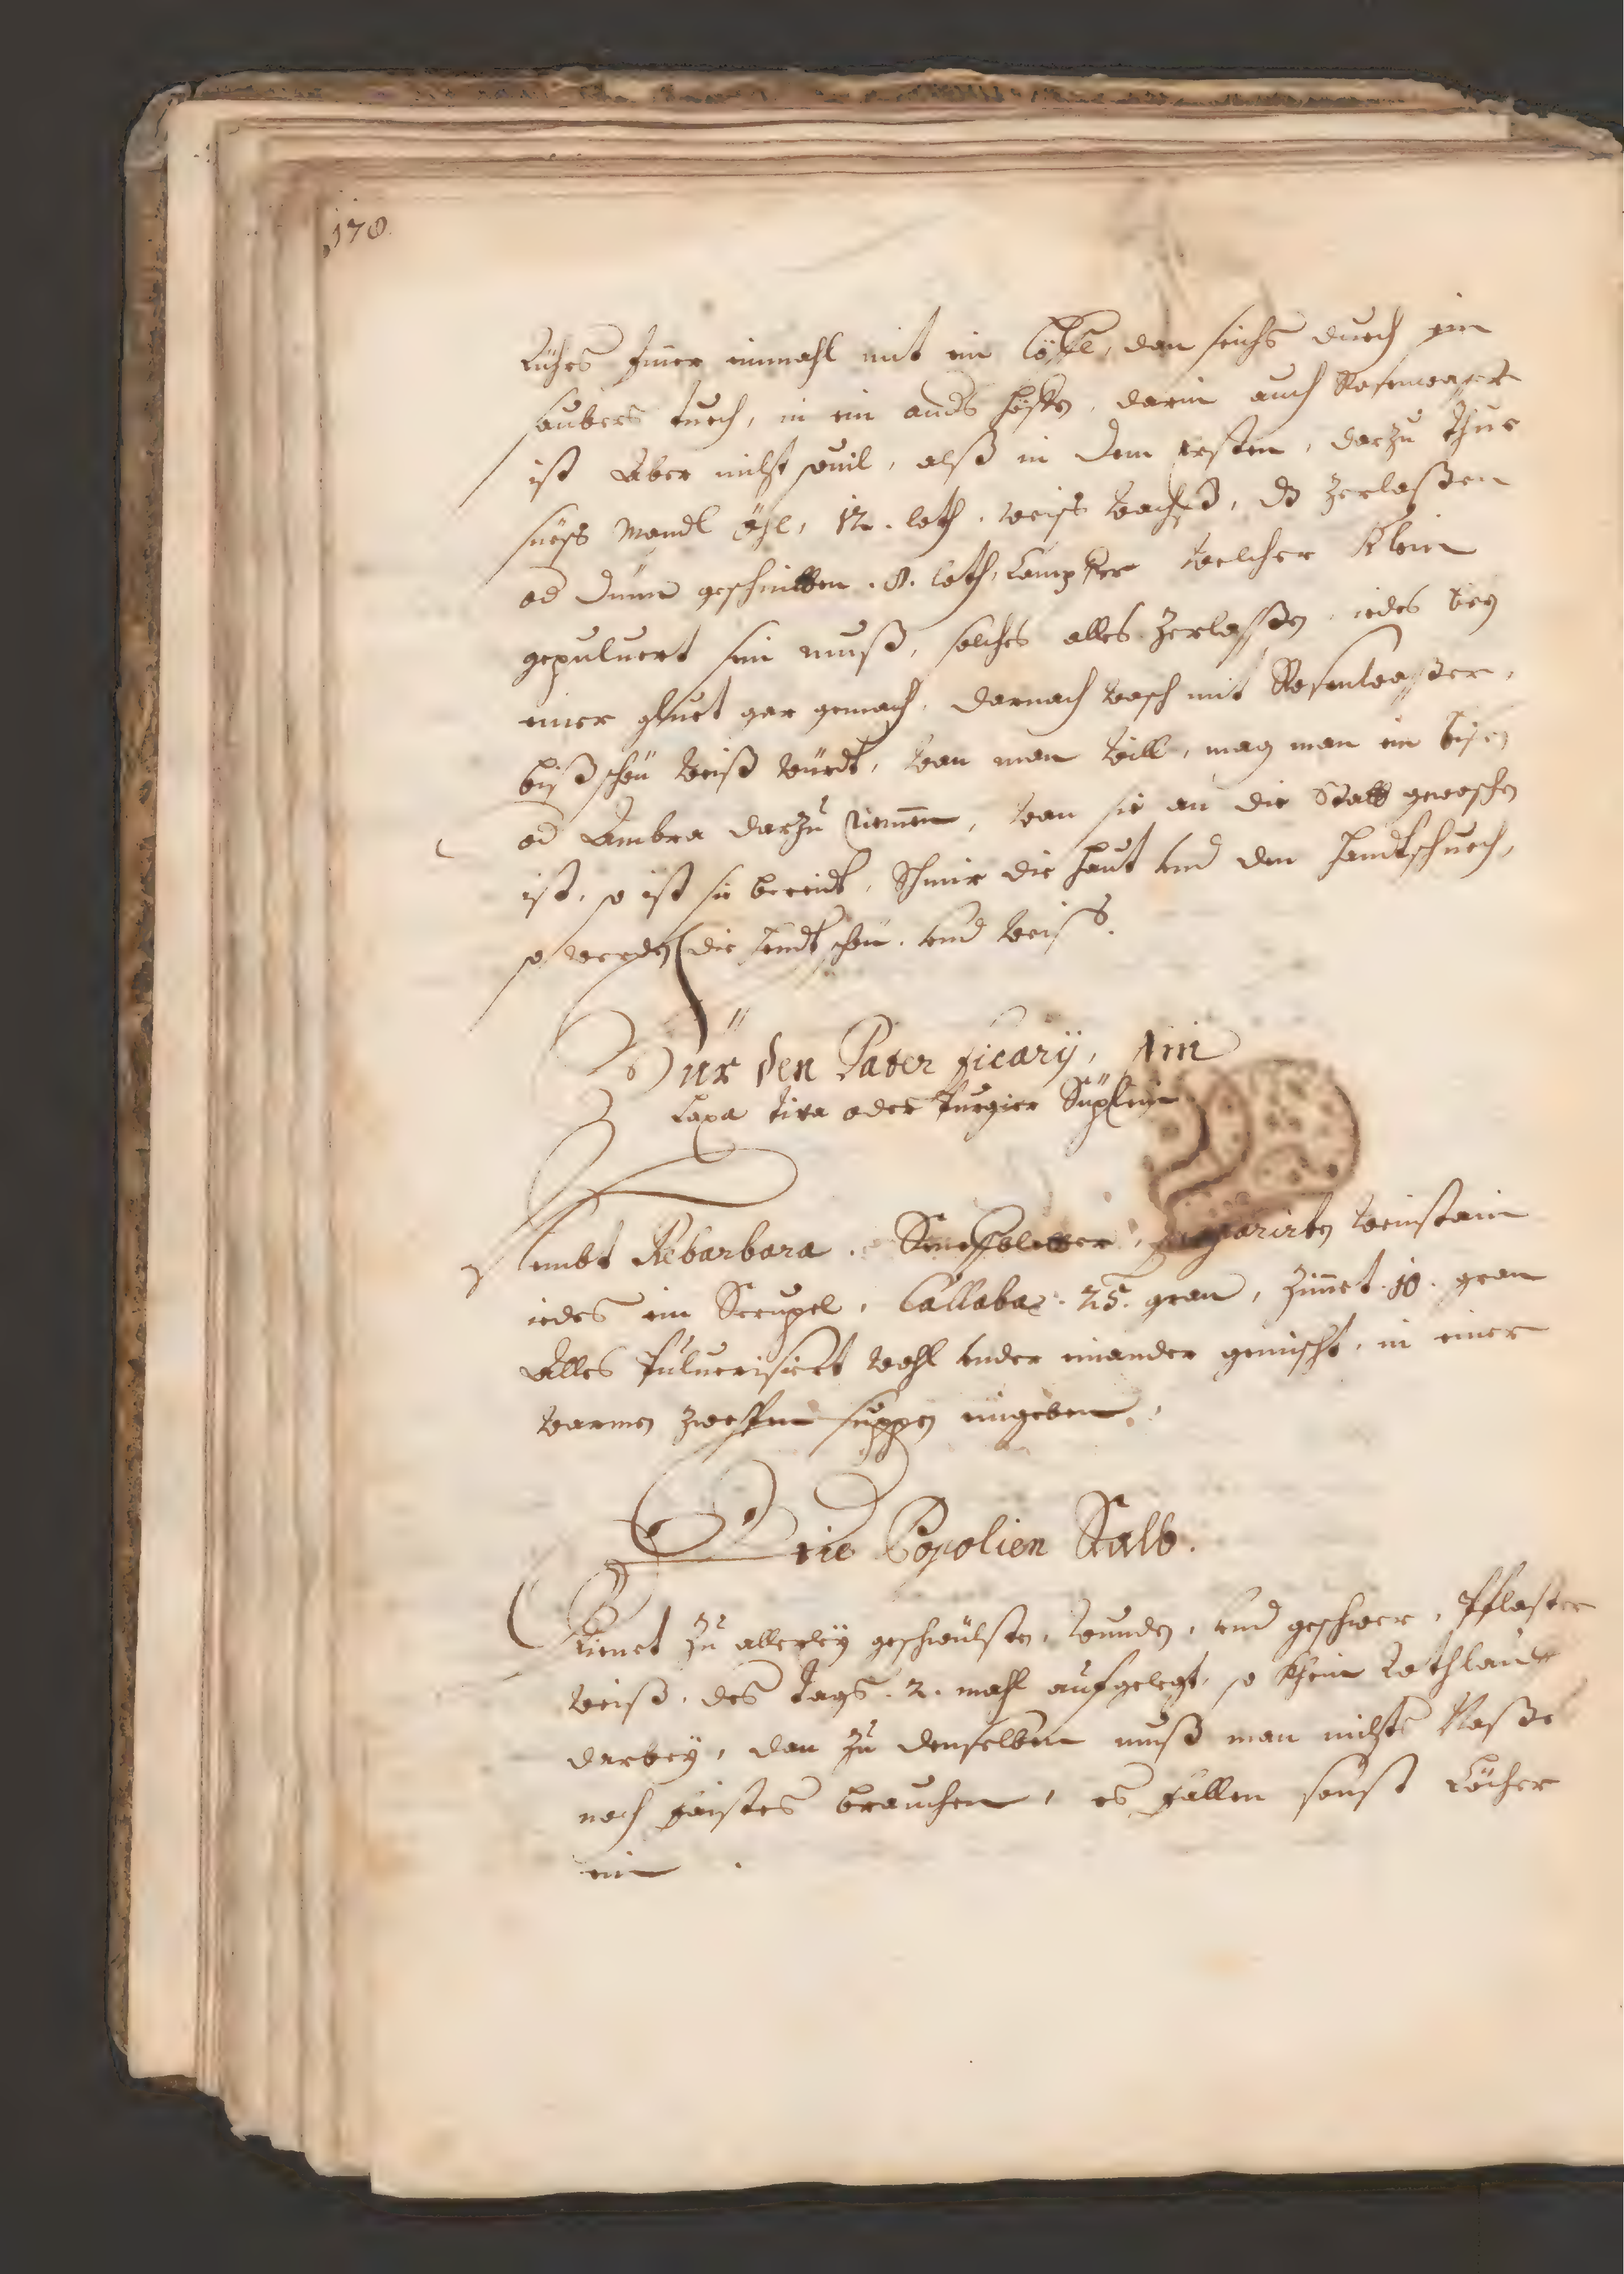 178
Rührs Immer einmahl mit ein Löffl, dan seichs durch ein
saubers tuch, in ein ands häffen, darin auch Rosenwaßer
ist Aber nicht souil, alß in dem Ersten, darzu thue
süess Mandl öhl, 12. loth, weiss wachß, dz zerlaßen
od dünn geschnitten .8. loth, Campffer welcher klein
gepuluert sein muß, solches alles zerlaßen, iedes bey
einer gluet gar gemach, darnach wasch mit Rosenwaßer,
biß schön weiß würdt, wan man will, mag man ein bisen
od Ambra darzu Nemmen, wan sie an die Statt gewaschen
ist, so ist sie bereidt, Schmir die haut und den handtschuech,
so werden die hendt schön und weiss.
Für den Pater Ficarij, Ein
Laxa tiva oder Purgier Süplein
Nembt Rebarbara, Senesbletter, praeparirten weinstain
iedes ein Scrupel, Callabax. 25. gran, Zimet .10. gran
Alles Puluerisiert wohl under einander gemischt, in einer
warmen zwesten suppen eingeben.
Die Popolien Salb.
Dienet zu allerleÿ geschwülsten, wunden, und geschwer, Pflaster
weiß, des tags .2. mahl aufgelegt, so khein Rothlauff
darbeÿ, dan zu denselben muß man nichts Naßes
noch faistes brauchen, es fallen sonst Löcher
ein.